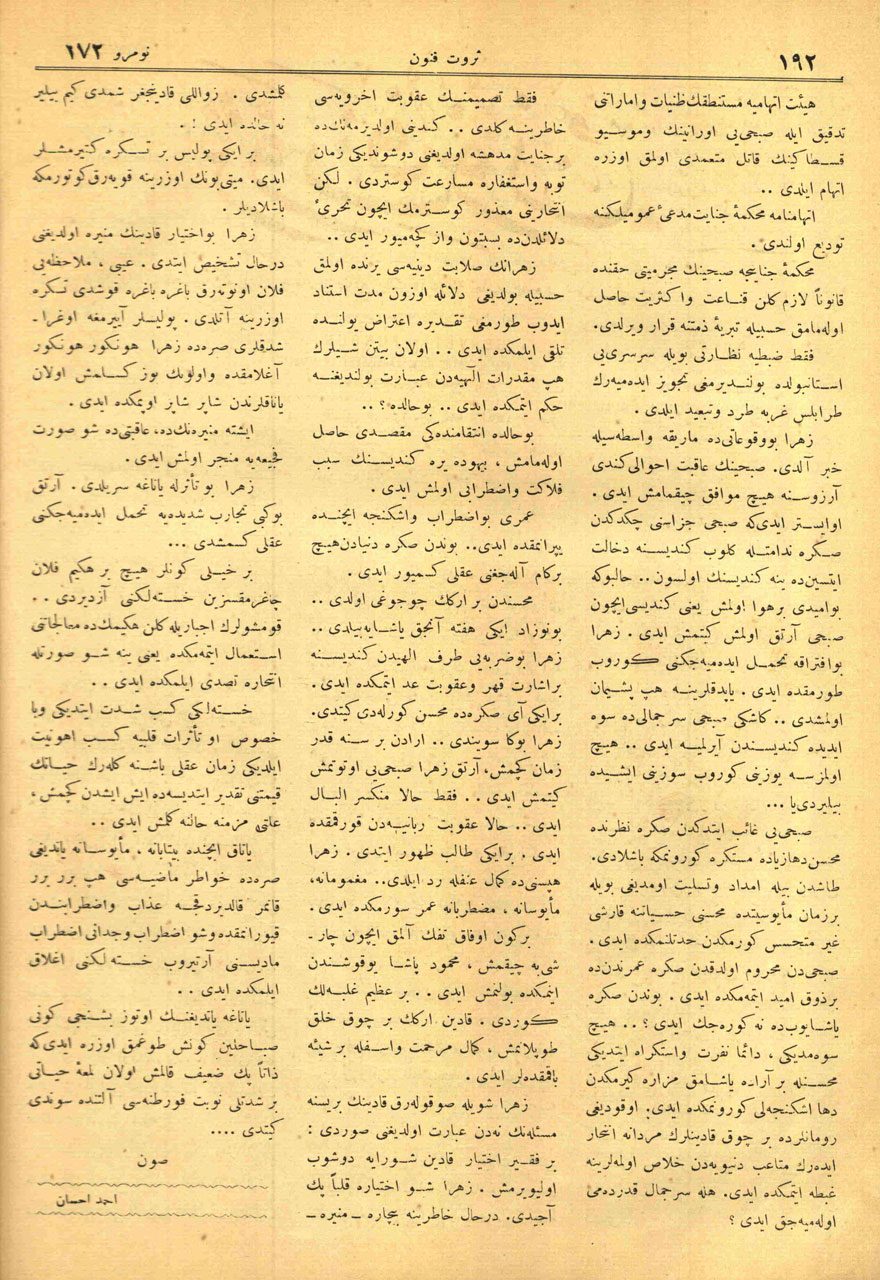 ١٩٢
ثروت فنون
نومرو ١٧٢
هيئت اتهاميه مستنطقك ظنيات و اماراتنى
تدقيق ايله صبحى‌يى اورانينك وموسيو
قسطاكينك قاتل متعمدى اولمق اوزره
اتهام ايلدى ..
اتهامنامه محكمهٔ جنايت مدعىٔ عموميلكنه
توديع اولندى.
محكمهٔ جنايجه صبحينك مجرميتى حقنده
قانوناً لازم كلن قناعت واكثريت حاصل
اوله‌مامق حسبيله تبريهٔ ذمتنه قرار ويرلدى.
فقط ضبطيه نظارتى بويله سرسرى‌يى
استانبولده بولنديرمغى تجويز ايده‌ميه‌رك
طرابلس غربه طرد وتبعيد ايلدى .
زهرا بووقوعاتى‌ده ماريقه واسطه‌سيله
خبر آلدى. صبحينك عاقبت احوالى كندى
آرزوسنه هيچ موافق چيقمامش ايدى .
اوايستر ايدى‌كه صبحى جزاسنى چكدكدن
صكره ندامتله كلوب كندينه دخالت
ايتسين‌ده ينه كندينك اولسون .. حالبوكه
بواميدى برهوا اولمش يعنى كنديسى‌ايچون
صبحى آرتق اولمش كيتمش ايدى . زهرا
بوافتراقه تحمل ايده‌ميه‌جكنى كوروب
طورمقده ايدى . ياپدقلرينه هپ پشيمان
اولمشدى .. كاشكى صبحى سر جمالى‌ده سوه
ايديده كنديسندن آيرلميه ايدى .. هيچ
اولمزسه يوزينى كوروب سوزينى ايشيده
بيليردى‌يا ...
صبحى‌يى غائب ايتدكدن صكره نظرنده
محسن دهازياده مستكره كورونمكه باشلادى.
طاشدن بيله امداد وتسليت اومديغى بويله
برزمان مأيوسيتده محسنى حسياتنه قارشى
غير متحسس كورمكدن حدتلنمكده ايدى .
صبحى‌دن محروم اولدقدن صكره عمرندن‌ده
برذوق اميد ايتمه‌مكده ايدى . بوندن صكره
ياشايوب‌ده نه كوره‌جك ايدى ؟ .. هيچ
سوه‌مديكى ، دائما نفرت واستكراه ايتديكى
محسنله بر آراده ياشامق مزاره كيرمكدن
دها اشكنجه‌لى كورونمكده ايدى. اوقوديغى
رومانلرده بر چوق قادينلرك مردانه انتحار
ايده‌رك متاعب دنيويه‌دن خلاص اولمه‌لرينه
غبطه ايتمكده ايدى. هله سرجمال قدرده‌مى
اوله‌ميه‌جق ايدى ؟
فقط تصميمنك عقوبت اخرويه‌سى
خاطرينه كلدى .. كندينى اولديرمه‌نك‌ده
برجنايت مدهشه اولديغنى دوشونديكى زمان
توبه واستغفاره مسارعت كوستردى . لكن
انتحارينى معذور كوسترمك ايچون تحرىٔ
دلائلدن‌ده بسبتون واز كچه‌ميور ايدى ..
زهرانك صلابت دينيه‌سى يرنده اولمق
حسبيله بولديغى دلائله اوزون مدت استناد
ايدوب طورمغى تقديره اعتراض يولنده
تلقى ايلمكده ايدى .. اولان بيتن شيلرك
هپ مقدرات الهيه‌دن عبارت بولنديغنه
حكم ايتمكده ايدى .. بوحالده ؟ ..
بوحالده انتقامنده‌كى مقصدى حاصل
اوله‌مامش ، بيهوده يره كنديسنك سبب
فلاكت واضطرابى اولمش ايدى .
عمرى بواضطراب واشكنجه ايچنده
يپرانمقده ايدى.. بوندن صكره دنيادن‌هيچ
بركام آله‌جغنى عقلى كسميور ايدى .
محسندن بر اركك چوجوغى اولدى ..
بونوزاد ايكى هفته آنجق ياشايه‌بيلدى ..
زهرا بوضربه‌يى طرف الهيدن كنديسنه
براشارت قهر وعقوبت عد ايتمكده ايدى .
برايكى آى صكره‌ده محسن كوره‌له‌دى كيتدى.
زهرا بوكا سويندى .. ارادن بر سنه قدر
زمان كچمش، آرتق زهرا صبحى‌يى اونوتمش
كيتمش ايدى .. فقط حالا منكسر البال
ايدى .. حالا عقوبت ربانيه‌دن قورقمقده
ايدى . برايكى طالب ظهور ايتدى . زهرا
هپسنى‌ده كمال عنفله رد ايلدى.. مغمومانه،
مأيوسانه ، مضطربانه عمر سورمكده ايدى.
بركون اوفاق تفك آلمق ايچون چار-
شى‌يه چيقمش ، محمود پاشا يوقوشندن
اينمكده بولنمش ايدى .. بر عظيم غلبه‌لك
كوردى . قادين اركك بر چوق خلق
طوپلانمش ، كمال مرحمت واسفله برشيئه
باقمقده‌لر ايدى .
زهرا شويله صوقوله‌رق قادينك بريسنه
مسئله‌نك نه‌دن عبارت اولديغنى صوردى :
بر فقير اختيار قادين شورايه دوشوب
اوليويرمش . زهرا شو اختياره قلباً پك
آجيدى. درحال خاطرينه بيچاره ــ منيره ــ
كلمشدى . زواللى قادينجغز شمدى كيم بيلير
نه حالده ايدى ! .
بر ايكى پوليس بر تسكره كتيرمشلر
ايدى. ميتى‌بونك اوزرينه قويه‌رق كوتورمكه
باشلاديلر .
زهرا بواختيار قادينك منيره اولديغنى
درحال تشخيص ايتدى . عيبى ، ملاحظه‌يى
فلان اونوته‌رق باغره باغره قوشدى تسكره
اوزرينه آتلدى . پوليسلر آييرمغه اوغرا-
شدقلرى صره‌ده زهرا هونكور هونكور
آغلامقده واولونك بوز كسلمش اولان
ياناقلرندن شاپر شاپر اوپمكده ايدى .
ايشته منيره‌نك‌ده، عاقبتى‌ده شو صورت
فجيعه‌يه منجر اولمش ايدى .
زهرا بو تأثرله ياتاغه سريلدى . آرتق
بوكبى تجارب شديده‌يه تحمل ايده‌ميه‌جكنى
عقلى كسمشدى ...
بر خيلى كونلر هيچ بر هكيم فلان
چاغرمقسزين خسته‌لكنى آزديردى ..
قومشولرك اجباريله كلن هكيمك‌ده معالجاتنى
استعمال ايتمه‌مكده يعنى ينه شو صورتله
انتحاره تصدى ايلمكده ايدى ..
خسته‌لكى كسب شدت ايتديكى وبا
خصوص او تأثرات قلبيه كسب اهونيت
ايلديكى زمان عقلى باشنه كله‌رك حياتك
قيمتنى تقدير ايتديسه‌ده ايش ايشدن كچمش،
علتى مزمنه حالنه كلمش ايدى ..
ياتاق ايچنده بيتابانه . مأيوسانه ياتديغى
صره‌ده خواطر ماضيه‌سى هپ برر برر
قانمر قالديردقجه عذاب واضطرابندن
قيورانمقده وشو اضطراب وجدانى اضطراب
ماديسنى آرتيروب خسته‌لكنى اغلاق
ايلمكده ايدى ..
ياتاغه ياتديغنك اوتوز بشنجى كونى
صباحلين كونش طوغمق اوزره ايدى‌كه
ذاتاً پك ضعيف قالمش اولان لمعهٔ حياتى
بر شدتلى نوبت فورطنه‌سى آلتنده سوندى
كيتدى ....
صون
احمد احسان